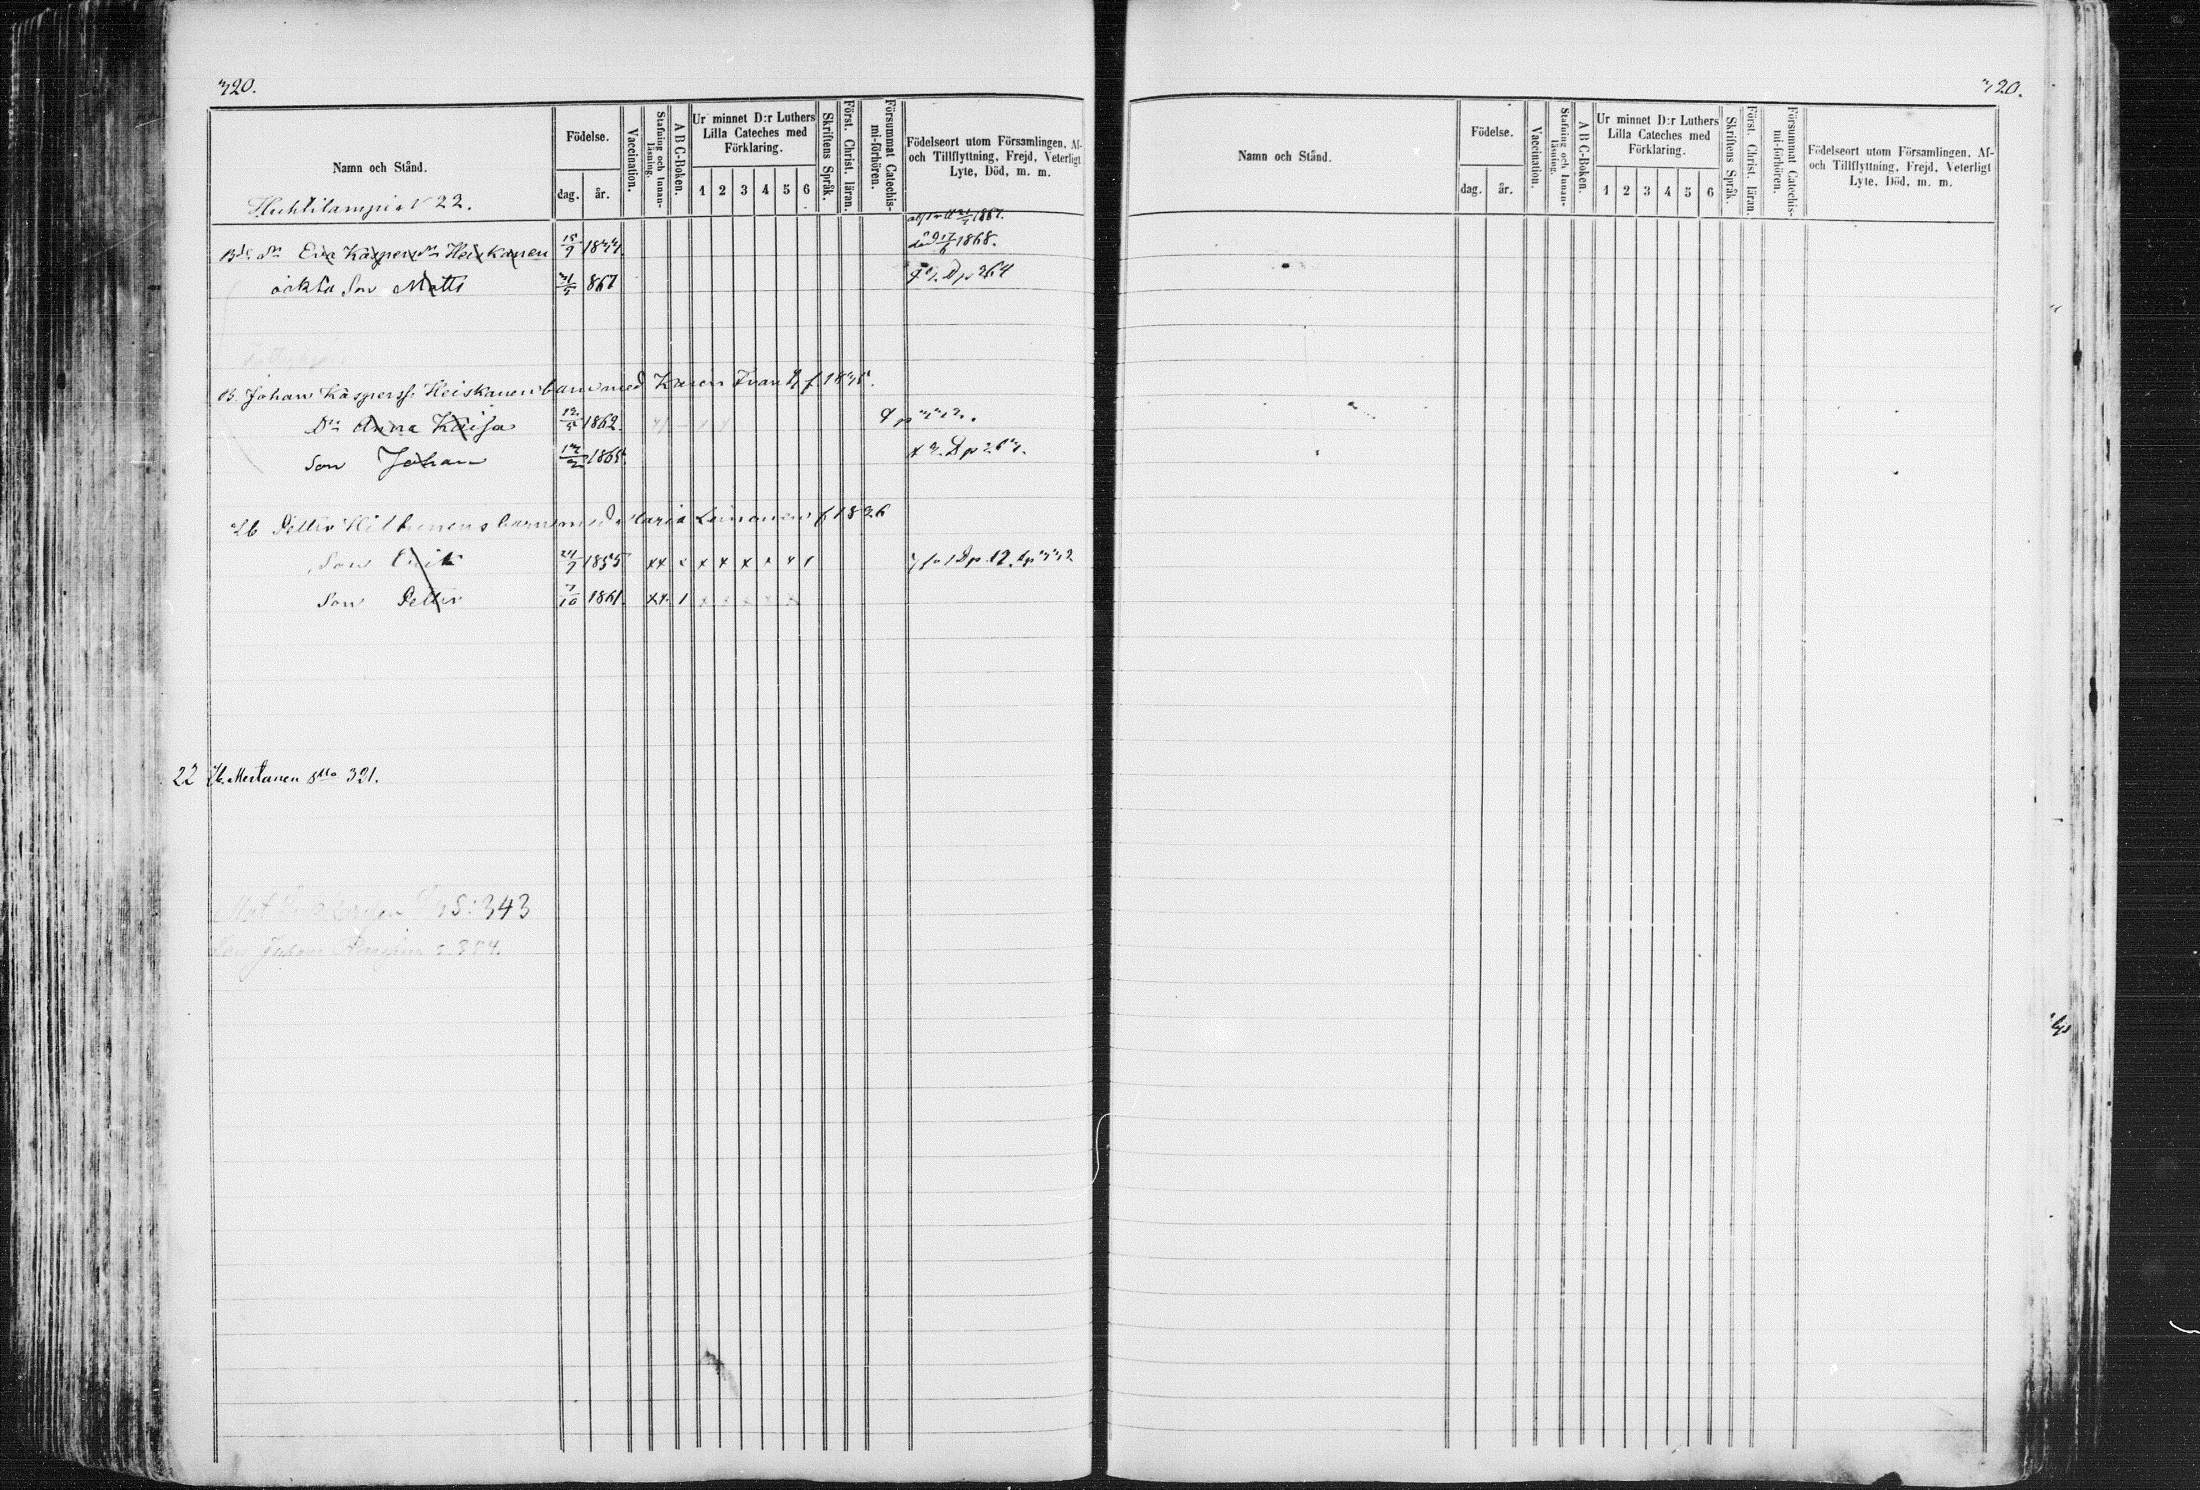 320.
Namn och Stånd.
Födelse.
dag.
år.
Vaccination.
Stafning och Innan-läsning.
A B C-Boken.
Ur minnet D:r Luthers
Lilla Cateches med
Förklaring.
1 2 3 4 5 6
Skriftens Språk.
Först. Christ. läran.
Försummat Catechis-mi-förhören.
Födelseort utom Församlingen, Af-
och Tillflyttning, Frejd, Veterligt
Lyte, Död, m. m.
Huhtilampi N 22.
1867.
Eva Kaspersdr Heiskanen 15/9 1844. död 17/6 1868.
oäkta Son Matts 31/5 867 Dp 264
B. Johan Kaspersf. Heiskanens barn med Karin Ivan f. 1835.
Dr Anna Kaisa 12/5 1862.
Son Johan 1865.
Lb Petter Hiltunens barn med Maria Leinonen f. 1826
Son Erik 24/7 1855 xx x x x x x x 1
Son Petter 7/10 1861. xx 1 x x x x x
22 Lb. Mertanen 321.
S: 343
s. 384.
320.
Namn och Stånd.
Födelse.
dag.
år.
Vaccination.
Stafning och Innan-läsning.
A B C-Boken.
Ur minnet D:r Luthers
Lilla Cateches med
Förklaring.
1 2 3 4 5 6
Skriftens Språk.
Först. Christ. läran.
Försummat Catechis-mi-förhören.
Födelseort utom Församlingen, Af-
och Tillflyttning, Frejd, Veterligt
Lyte, Död, m. m.